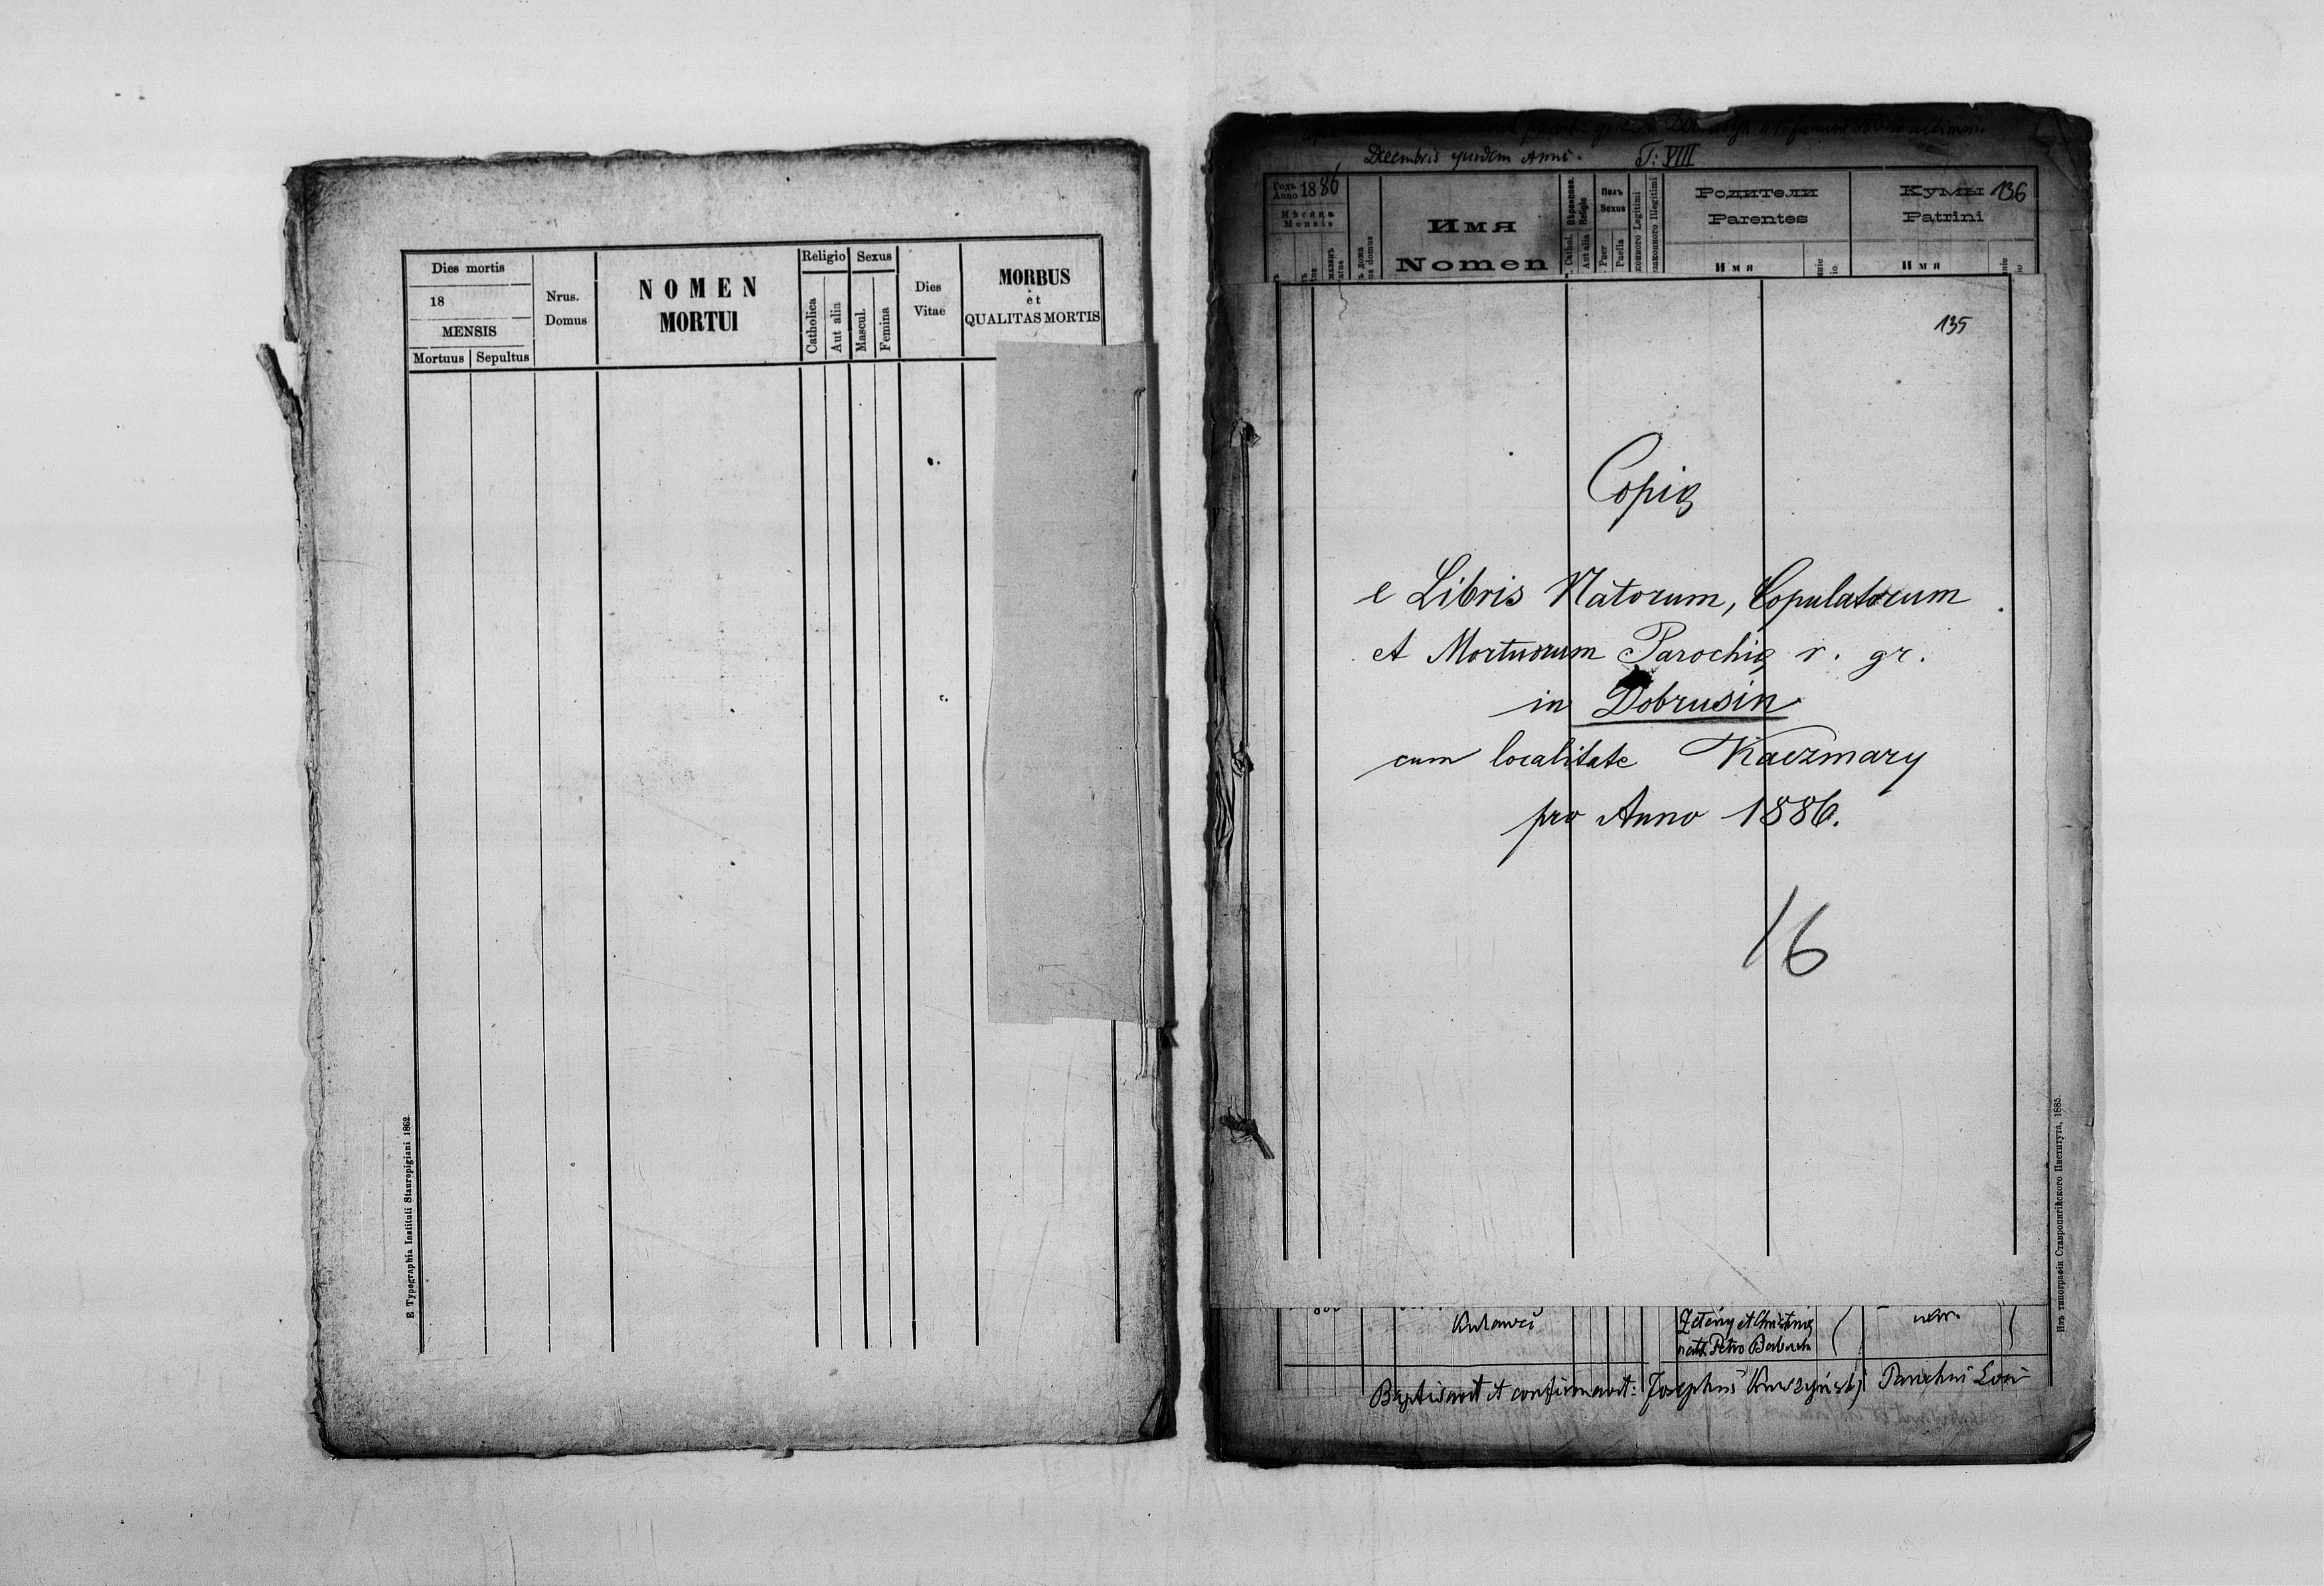 Dies mortis
18
MENSIS
Mortuus
Sepultus
Nrus.
Domus
NOMEN
MORTUI
Religio
Catholica
Aut alia
Sexus
Mascul.
Femina
Dies
Vitae
MORBUS
et
QUALITAS MORTIS
E Typographia Instituti Stauropigiani 1862
Decembris ejusdem Anni. T: VIII
Годъ
Anno 1886
Мѣсяцъ
Mensis
Имя
Nomen
Religio
Aut alia
Полъ
Sexus
Puer
Puella
Legitimi
Illegitimi
Родители
Parentes
Имя
Кумы 136
Patrini
Имя
135
Copia
e Libris Natorum, Copulatorum
et Mortuorum Parochię r. gr.
in Dobrusin
cum localitate Kaczmary
pro Anno 1886.
16
Baptisavit et confirmavit: Josephus
Изъ типографіи Ставропигійского Института, 1885.